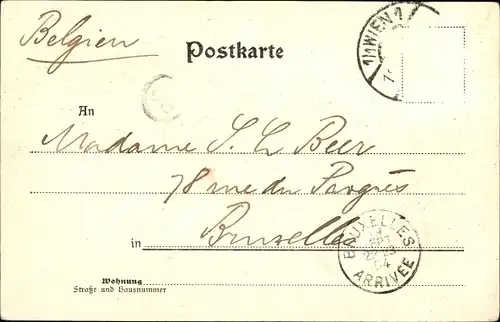 Belgien
Postkarte
1/1 WIEN 1
An
Madame S. L. Beer
78 rue du Progrès
in Bruxelles
BRUXELLES
ARRIVÉE
Wohnung
Straße und Hausnummer